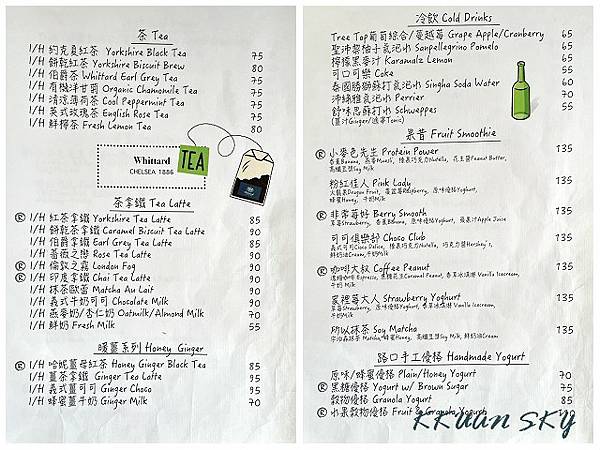 茶 Tea
I/H 約克夏紅茶 Yorkshire Black Tea 75
I/H 餅乾紅茶 Yorkshire Biscuit Brew 80
I/H 伯爵茶 Whittard Earl Grey Tea 75
I/H 有機洋甘菊 Organic Chamomile Tea 75
I/H 清涼薄荷茶 Cool Peppermint Tea 75
I/H 英式玫瑰茶 English Rose Tea 75
I/H 鮮檸茶 Fresh Lemon Tea 80
Whittard
CHELSEA 1886
TEA
茶拿鐵 Tea Latte
® I/H 紅茶拿鐵 Yorkshire Tea Latte 85
I/H 餅乾茶拿鐵 Caramel Biscuit Tea Latte 90
I/H 伯爵拿鐵 Earl Grey Tea Latte 85
I/H 薔薇之戀 Rose Tea Latte 90
® I/H 倫敦之霧 London Fog 90
® I/H 印度拿鐵 Chai Tea Latte 90
I/H 抹茶歐蕾 Matcha Au Lait 90
I/H 義式牛奶可可 Chocolate Milk 90
I/H 燕麥奶/杏仁奶 Oatmilk/Almond Milk 70
I/H 鮮奶 Fresh Milk 55
暖薑系列 Honey Ginger
® I/H 哈妮薑母紅茶 Honey Ginger Black Tea 85
I/H 薑茶拿鐵 Ginger Tea Latte 95
I/H 義式薑可可 Ginger Choco 95
I/H 蜂蜜薑牛奶 Ginger Milk 70
冷飲 Cold Drinks
Tree Top葡萄綜合/蔓越莓 Grape Apple/Cranberry 65
聖沛黎柚子氣泡水 Sanpellegrino Pomelo 65
檸檬黑麥汁 Karamalz Lemon 65
可口可樂 Coke 55
泰國勝獅蘇打氣泡水 Singha Soda Water 60
沛綠雅氣泡水 Perrier 70
舒味思蘇打水 Schweppes 55
(薑汁Ginger/通寧Tonic)
果昔 Fruit Smoothie
® 小麥色先生 Protein Power 135
香蕉Banana, 燕麥Muesli, 榛果巧克力Nutella, 花生醬Peanut Butter,
高纖豆漿Soy Milk
粉紅佳人 Pink Lady 135
火龍果Dragon Fruit, 覆盆莓Raspberry, 原味優格Yoghurt,
蜂蜜Honey, 牛奶Milk
® 非常莓好 Berry Smooth 135
草莓Strawberry, 香蕉Banana, 原味優格Yoghurt, 蘋果汁Apple Juice
可可俱樂部 Choco Club 135
® 咖啡大叔 Coffee Peanut 135
家裡莓大人 Strawberry Yoghurt 135
所以抹茶 Soy Matcha 135
宇治森抹茶 Matcha, 蜂蜜Honey, 高纖豆漿Soy Milk, 鮮奶油Cream
路口手工優格 Handmade Yogurt
原味/蜂蜜優格 Plain/Honey Yogurt 70
® 黑糖優格 Yogurt w/ Brown Sugar 75
穀物優格 Granola Yogurt 85
® 水果穀物優格 Fruit & Granola Yogurt
KKUAN SKY